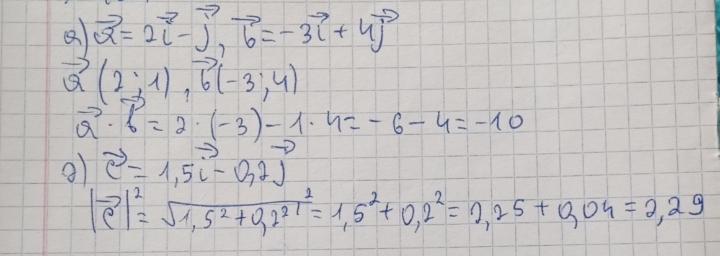 а) a⃗ = 2i⃗ - j⃗, b⃗ = -3i⃗ + 4j⃗
a⃗ (2; 1), b⃗(-3; 4)
a⃗ · b⃗ = 2 · (-3) - 1 · 4 = -6 - 4 = -10
д) c⃗ = 1,5i⃗ - 0,2j⃗
|c⃗|² = √(1,5² + 0,2²)² = 1,5² + 0,2² = 2,25 + 0,04 = 2,29